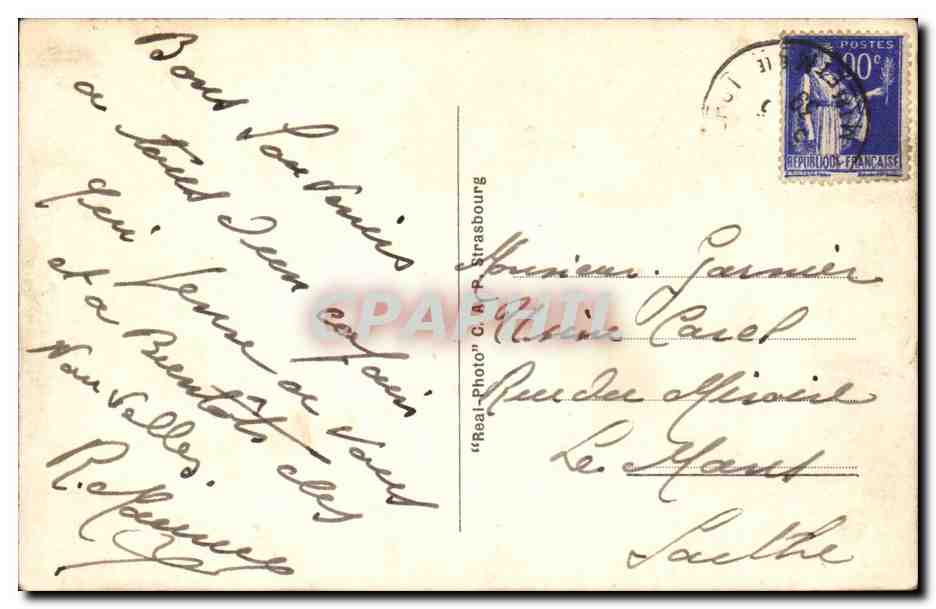 Bons Souvenirs
a tous d'un copain
qui pense a vous
et a Bientôts des
Nouvelles.
"Real-Photo" C. A. P. Strasbourg
POSTES
90c
RÉPUBLIQUE FRANÇAISE
Monsieur Garnier
Usine Carel
Rue du Miroir
Le Mans
Sarthe
CPAPHIL